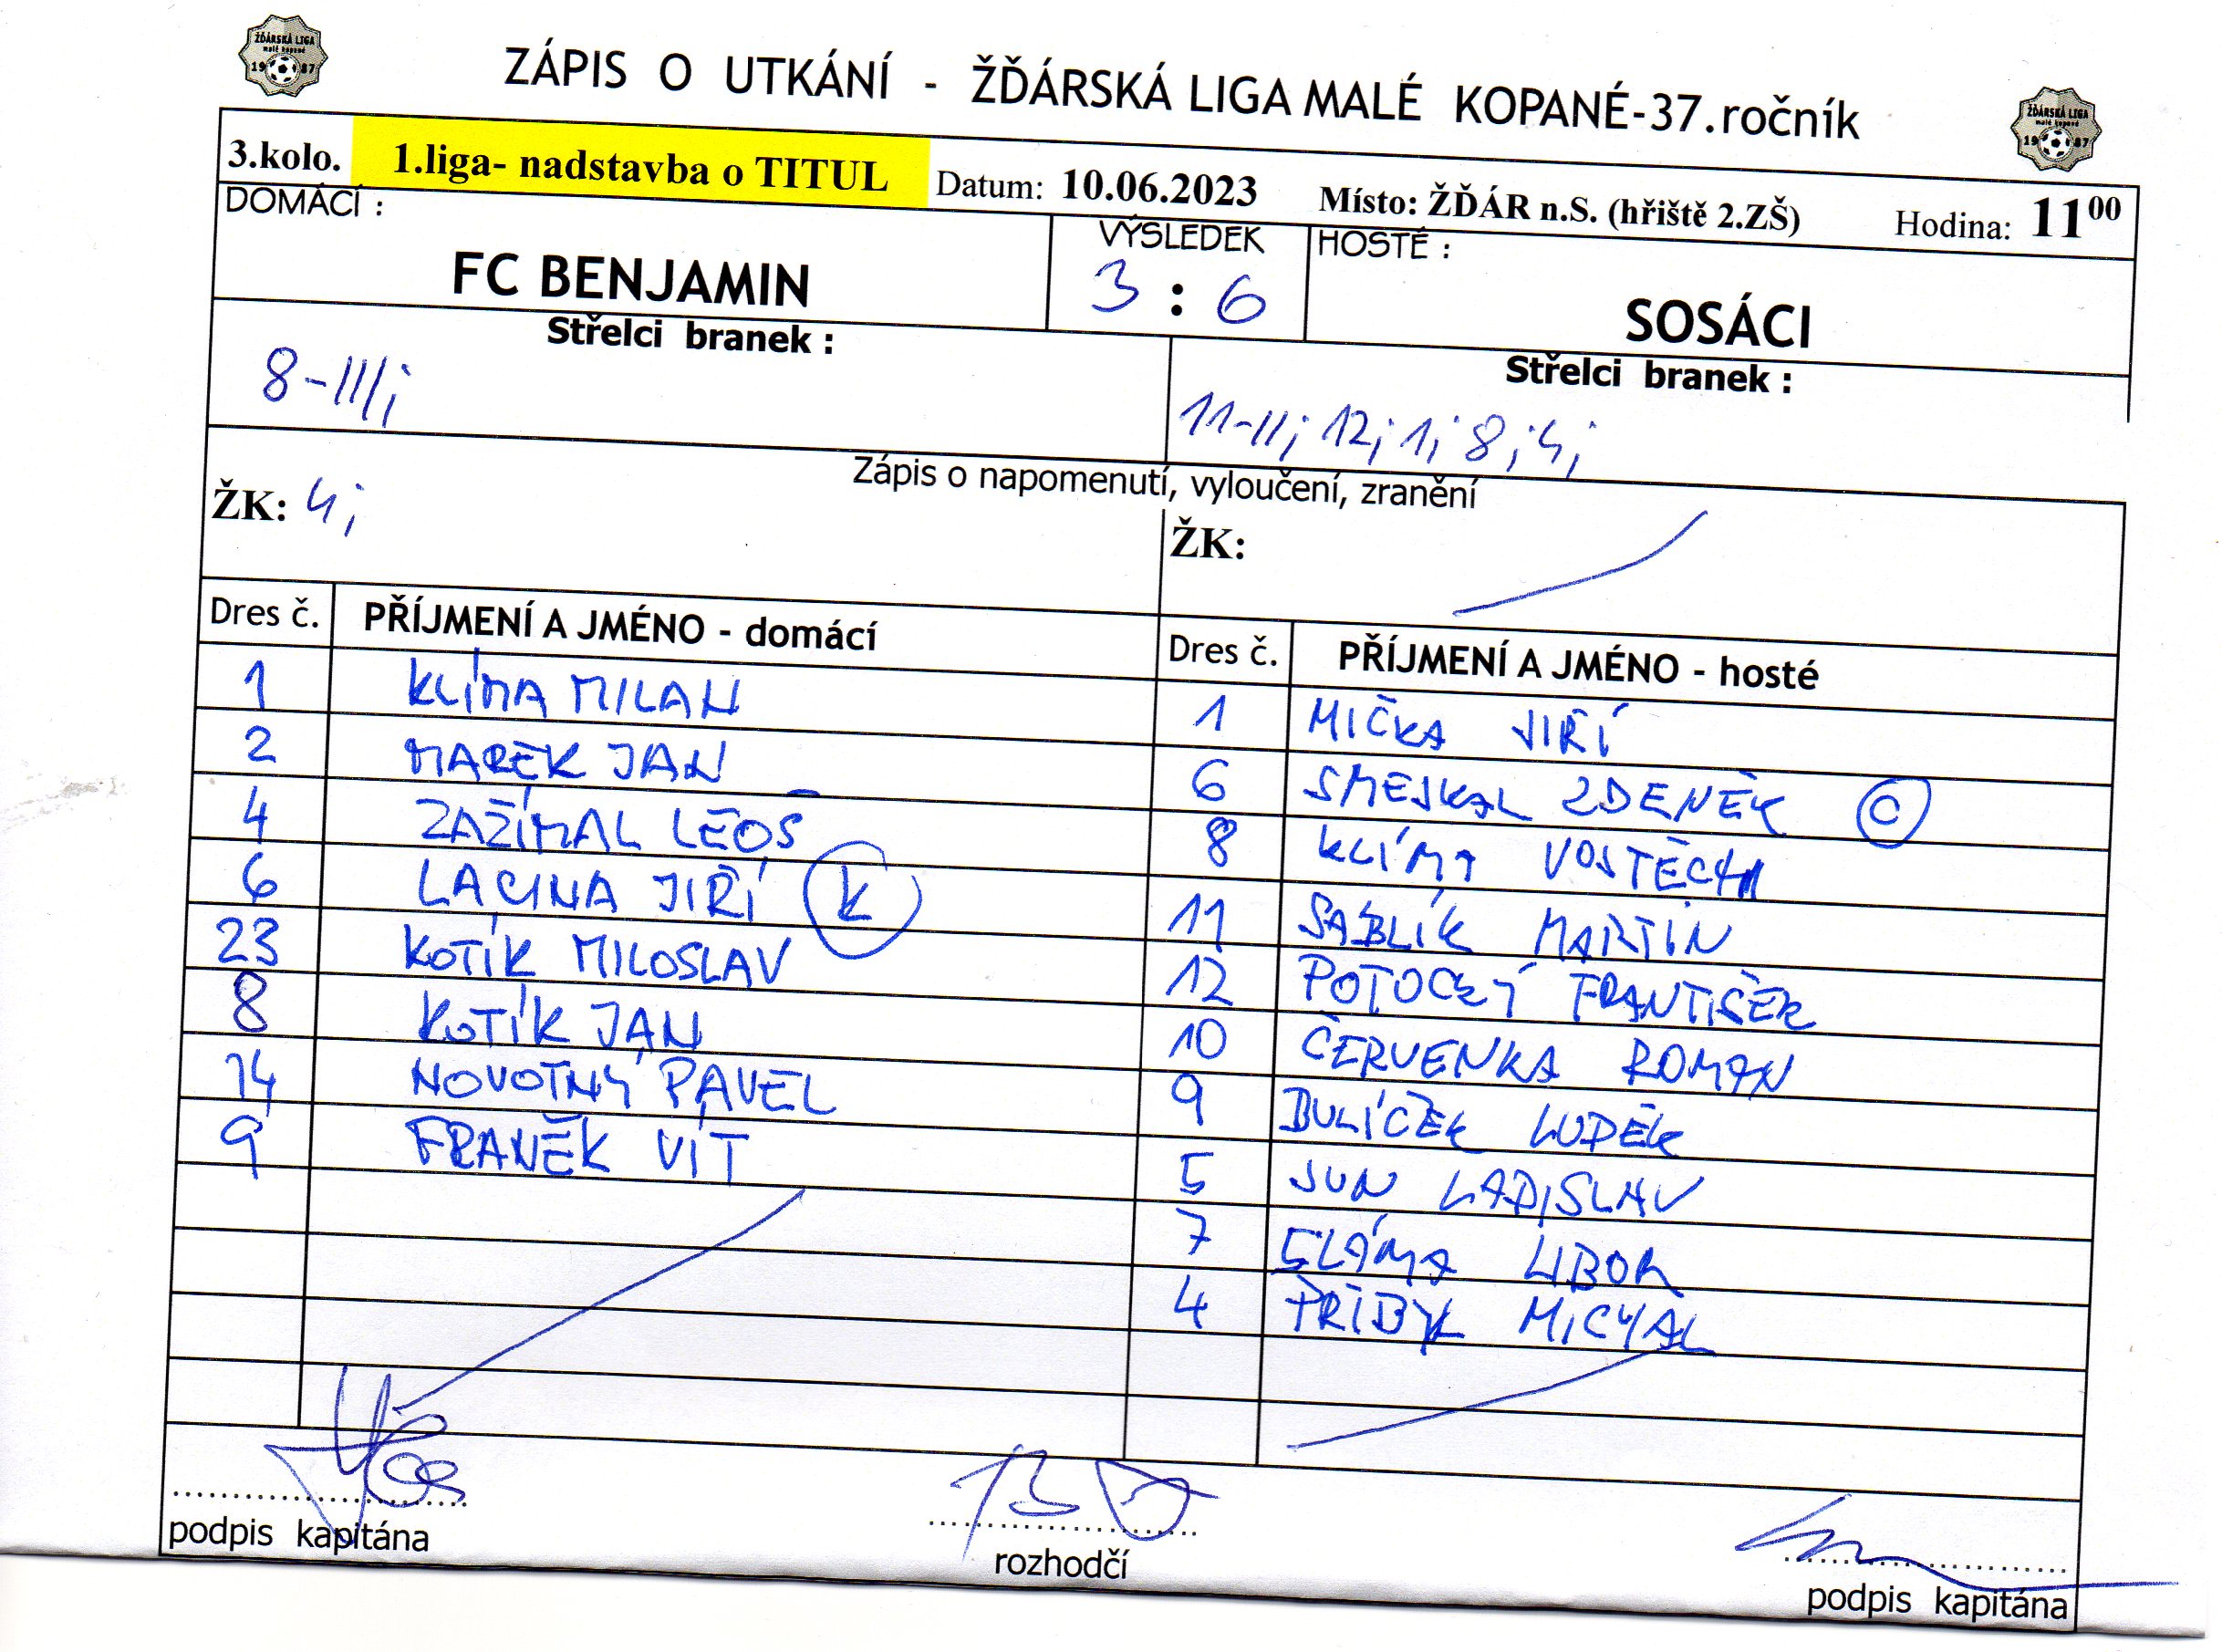 ŽĎÁRSKÁ LIGA
malé kopané
1987
ZÁPIS O UTKÁNÍ - ŽĎÁRSKÁ LIGA MALÉ KOPANÉ-37.ročník
ŽĎÁRSKÁ LIGA
malé kopané
1987
3.kolo. 1.liga- nadstavba o TITUL Datum: 10.06.2023 Místo: ŽĎÁR n.S. (hřiště 2.ZŠ) Hodina: 11 00
DOMÁCÍ : VÝSLEDEK HOSTÉ :
FC BENJAMIN 3 : 6 SOSÁCI
Střelci branek : Střelci branek :
8-III; 11-II; 12; 1; 8; 4;
Zápis o napomenutí, vyloučení, zranění
ŽK: 4; ŽK:
Dres č. PŘÍJMENÍ A JMÉNO - domácí Dres č. PŘÍJMENÍ A JMÉNO - hosté
1 KLÍMA MILAN 1 MIČKA JIŘÍ
2 MAREK JAN 6 SMEJKAL ZDENĚK C
4 ZAŽÍMAL LEOŠ 8 KLÍMA VOJTĚCH
6 LACINA JIŘÍ K 11 SÁBLÍK MARTIN
23 KOTÍK MILOSLAV 12 POTOCKÝ FRANTIŠEK
8 KOTÍK JAN 10 ČERVENKA ROMAN
14 NOVOTNÝ PAVEL 9 BULÍČEK LUDĚK
9 FRANĚK VÍT 5 JUN LADISLAV
7 SLÁMA LIBOR
4 PŘIBYL MICHAL
podpis kapitána rozhodčí podpis kapitána